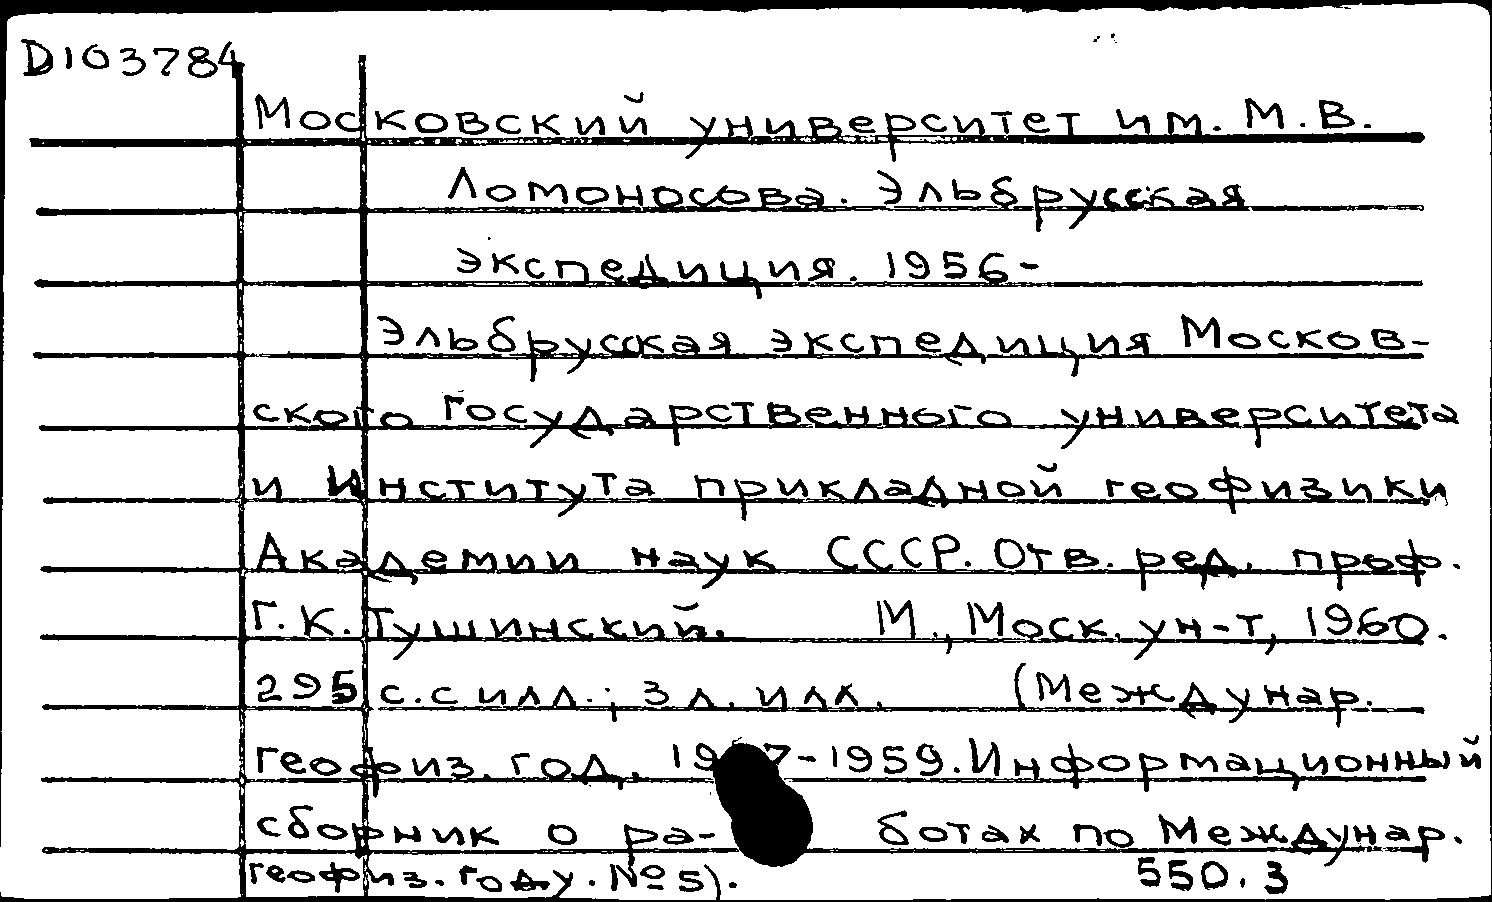 D103784
Московский университет им. М.В.
Ломоносова. Эльбрусская
экспедиция. 1956-
Эльбрусская экспедиция Москов-
ского Государственного университета
и Института прикладной геофизики
Академии наук СССР. Отв. ред. проф.
Г.К. Тушинский. М., Моск. ун-т, 1960.
295 с. с илл.; 3 л. илл. (Междунар.
геофиз. год. 19 7-1959. Информационный
сборник о ра- ботах по Междунар.
геофиз. году. № 5).
550.3